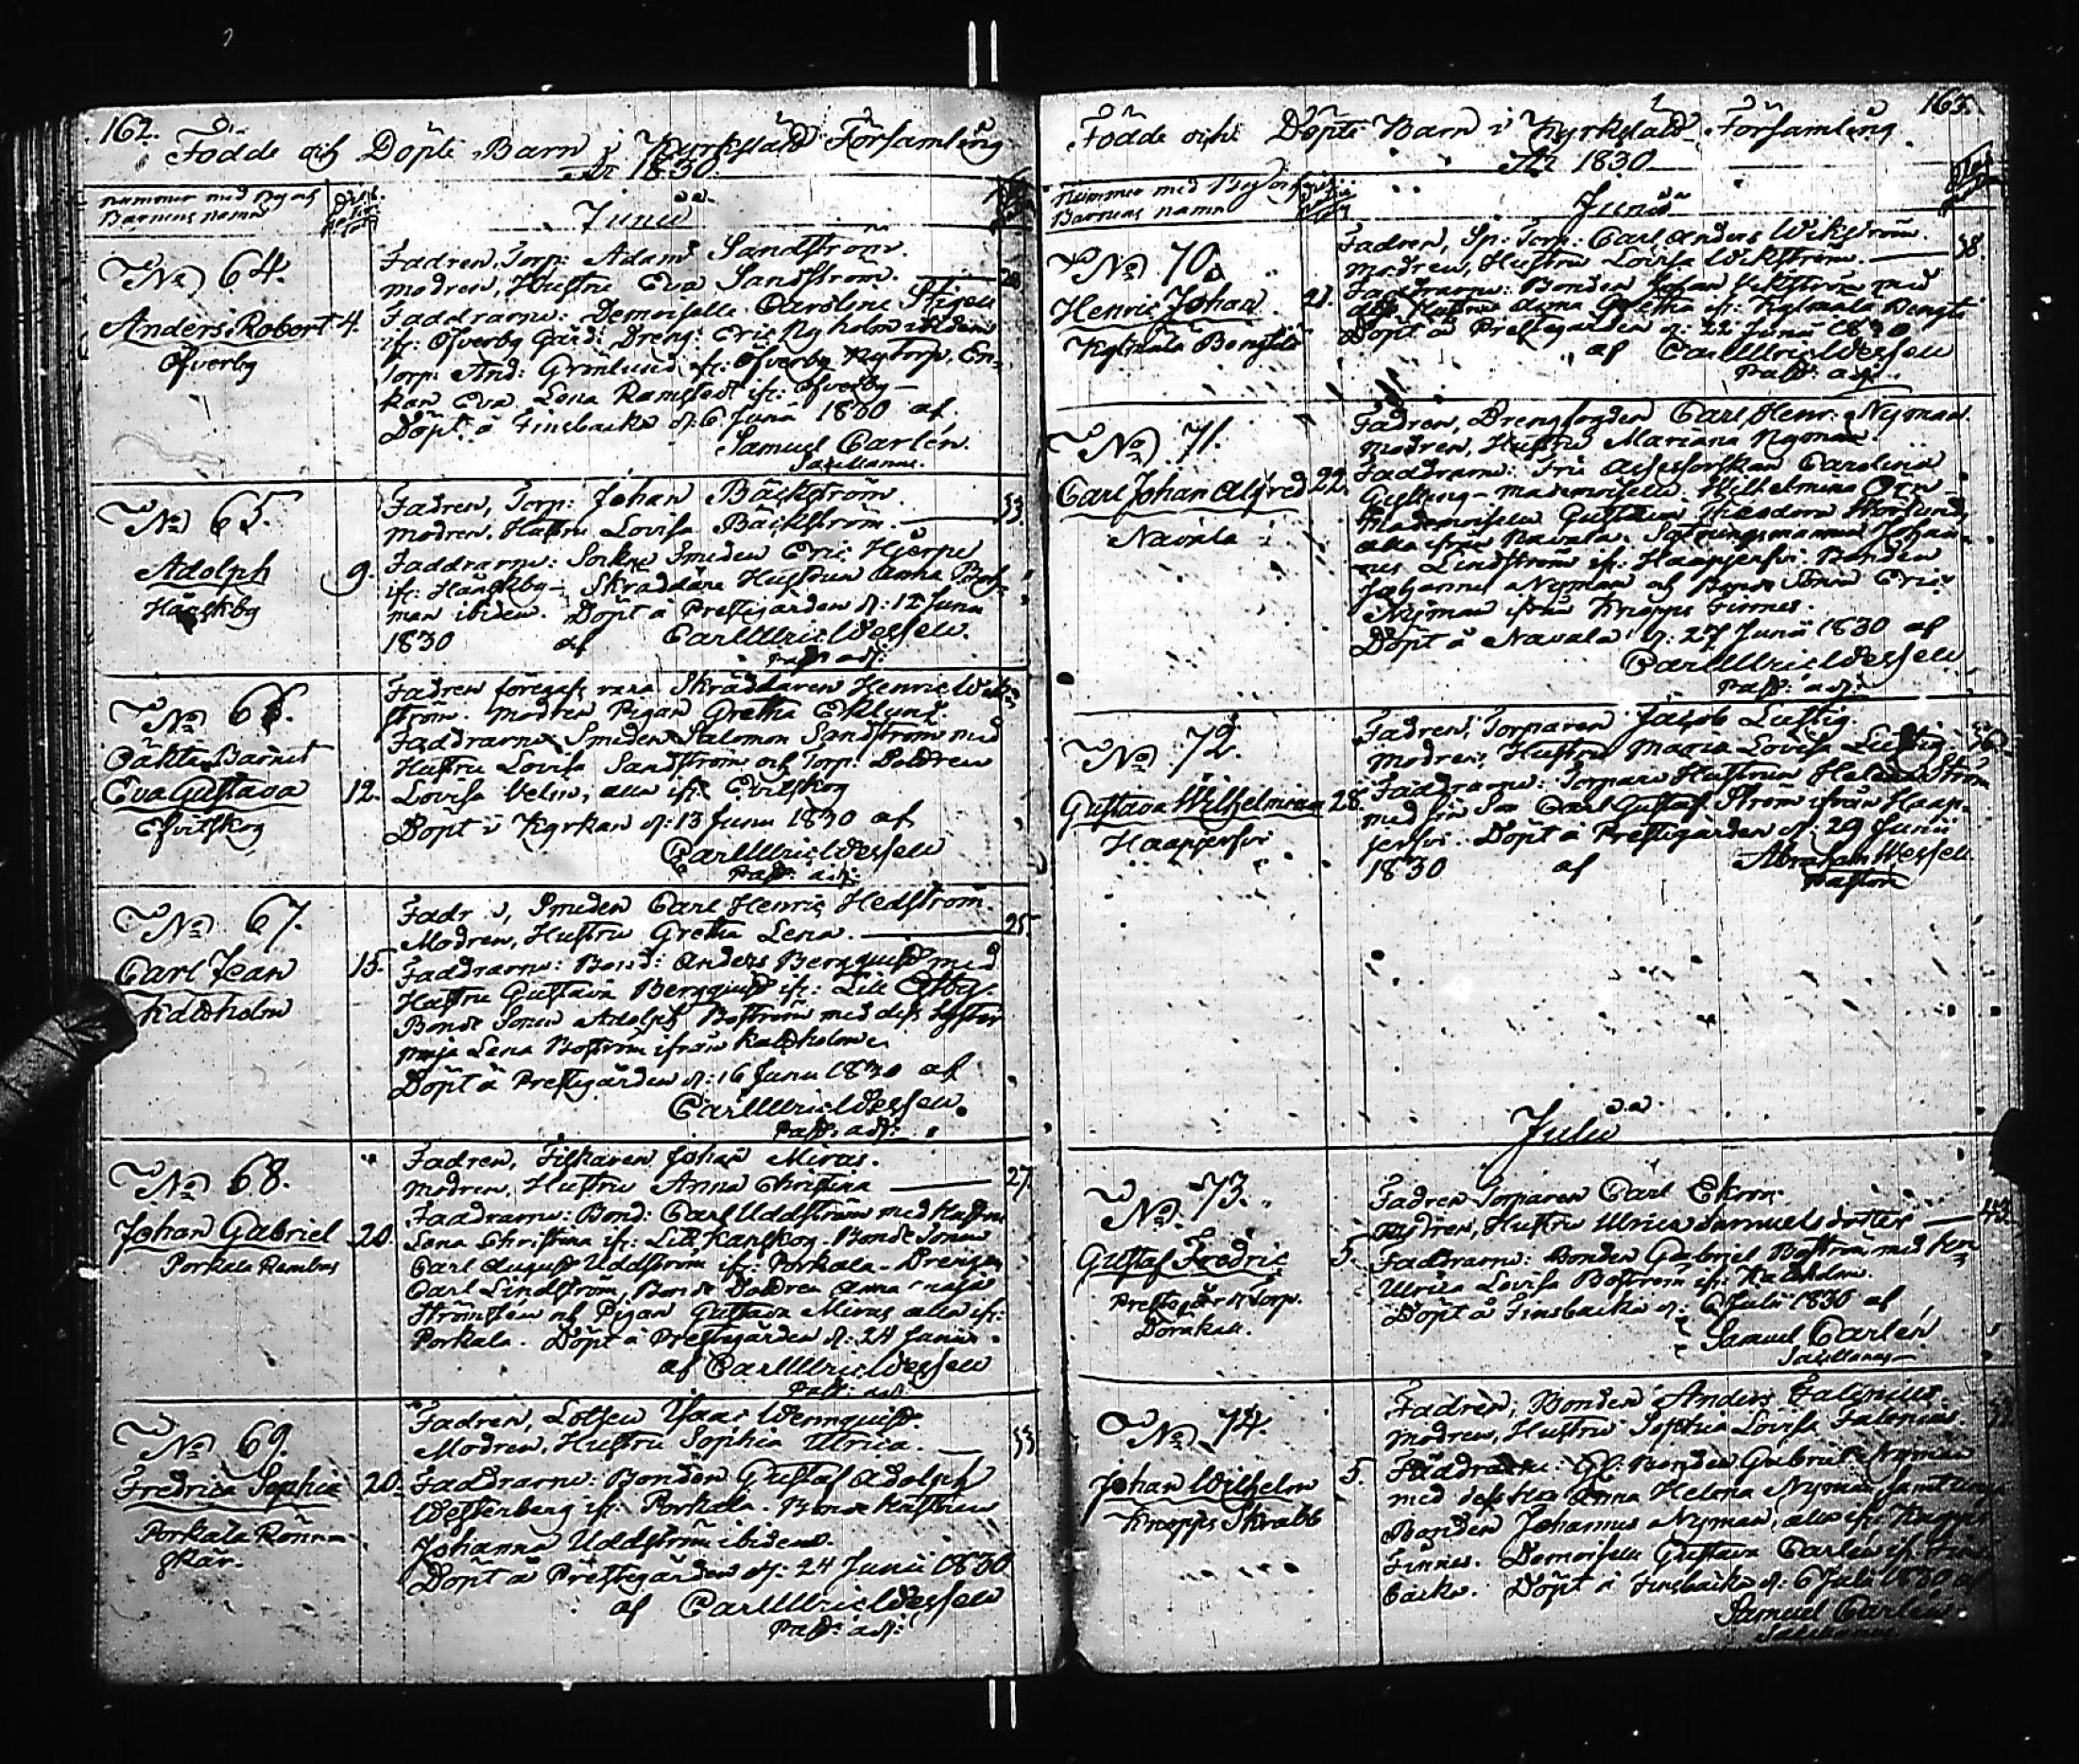 162.
Födde och Döpte Barn i Kyrkslätt Församling
År 1830.
nummer med By och
Barnens namn
Junii
No 64.
Anders Robert 4.
Öfverby
Fadren, Torp: Adam Sandström.
modren, Hustru Eva Sandström.
Faddrarne: Demoiselle Carolina
ifr: Öfverby Gård: Dreng: Eric Nyholm ibidem
Torp: And: Grönlund, ifr: Öfverby Nytorp, En-
kan Eva Lena Ramstedt ifr: Öfverby —
Döpt å Finsbacka d: 6 Junii 1830 af
Samuel Carlén.
Sacellanus.
No 65.
Adolph 9.
Fadren, Torp: Johan Bäckström.
modren, Hustru Lovisa Bäckström. 33.
Faddrarne: Sockne Smeden Eric Hjerpe
Skräddare Hustrun Anna
man ibidem. Döpt å Prestegården d: 12 Junii
1830 af Carl Ulric Wessell.
Past: adj:
No 66.
Oäkta Barnet
Eva Gustava 12.
Evitskog
Fadren föregifs vara Skräddaren Henric
ström. modren Pigan Gretha Eklund.
Faddrarne Smeden Salomon Sandström med
Hustru Lovisa Sandström och Torp: Doldren
Lovisa alla ifr: Evitskog
Döpt i Kyrkan d: 13 Junii 1830 af
Carl Ulric Wessell
Past: adj:
No 67.
Carl Jean 15.
Kalvholm
Smeden Carl Henric Hedström.
Modren, Hustru Gretha Lena. 25.
Faddrarne: Bond: Anders Bergquist med
Hustru Gustava Bergquist ifr: Lill
Bonde Sonen Adolph Boström med dess Syster
Maja Lena Boström ifrån
Döpt å Prestegården d: 16 Junii 1830 af
Carl Ulric Wessell.
Past: adj:
No 68.
Johan Gabriel 20.
Porkala Rambus
Fadren, Fiskaren Johan Miras.
modren, Hustru Anna Christina 27.
Faddrarne: Bond: Carl Uddström med Hustru
Lena Christina ifr: Lill Kanskog. Bonde Sonen
Carl August Uddström ifr: Porkala. Drengen
Carl Lindström, Bonde Doldren Anna Maja
Strömsten och Pigan Gustava Miras alla ifr:
Porkala. Döpt å Prestegården d: 24 Junii
af Carl Ulric Wessell
Past: adj:
No 69.
Fredrica Sophia 20.
Porkala Rönn-
skär.
Fadren, Lotsen Isaac Wennquist.
Modren, Hustru Sophia Ulrica. 33
Faddrarne: Bonden Gustaf Adolph
Westerberg ifr: Porkala. Bonde Hustrun
Johanna Uddström ibidem.
Döpt å Prestegården d: 24 Junii 1830
af Carl Ulric Wessell
Past: adj:
163.
Födde och Döpte Barn i Kyrkslätt Församling.
År 1830
Nummer med By och
Barnens namn
Junii
No 70.
Henric Johan 21.
Kylmälä Bengts
Fadren, Sp: Torp: Carl Anders Wikström.
modren, Hustru Lovisa Wikström. 38.
Faddrarne: Bonden Johan med
dess Hustru Anna Gretha ifr: Kylmälä Bengts
Döpt å Prestegården d: 22 Junii 1830
af Carl Ulric Wessell
Past: adj:
No 71.
Carl Johan Alfred 22.
Navala
Fadren, Drengfogden Carl Henr: Nyman.
modren, Hustru Mariana Nyman.
Faddrarne: Fru Assessorskan Carolina
mademoiselle Wilhelmina
Mademoiselle Gustava Theodora
alla ifrån Navala. Sexmannen Johan-
nes Lindström ifr: Haapjerfvi. Bonden
Johannes Nyman och Bonde Sonen Eric
Nyman ifrån Knopps Finnes.
Döpt å Navala d: 27 Junii 1830 af
Carl Ulric Wessell
Past: adj:
No 72.
Gustava Wilhelmina 28.
Haapjerfvi
Fadren, Torparen Jacob Lustig.
modren, Hustru Maria Lovisa Lustig 36
Faddrarne: Torpare Hustrun Helena Ström
med sin Son Carl Gustaf Ström ifrån Haap-
jerfvi. Döpt å Prestegården d: 29 Junii
1830 af Abraham Wessell
Pastor
Julii
No 73.
Gustaf Fredric 5.
Prestegårds Torp.
Fadren Torparen Carl Ekrom
modren, Hustru Ulrica Samuelsdotter 43.
Faddrarne: Bonden Gabriel Boström med
Ulrica Lovisa Boström ifr:
Döpt å Finsbacka d: 6 Julii 1830 af
Samuel Carlén
Sacellanus
No 74.
Johan Wilhelm 5.
Knopps Skrabb
Fadren, Bonden Anders Falenius.
modren, Hustru Sophia Lovisa Falenius.
Faddrarne: Gl: Bonden Gabriel Nyman
med dess Anna Helena Nyman samt unga
Bonden Johannes Nyman, alla ifr: Knopps
Finnes. Demoiselle Gustava Carlén ifr: Fins-
backa. Döpt å Finsbacka d: 6 Julii 1830 af
Samuel Carlén.
Sacellanus